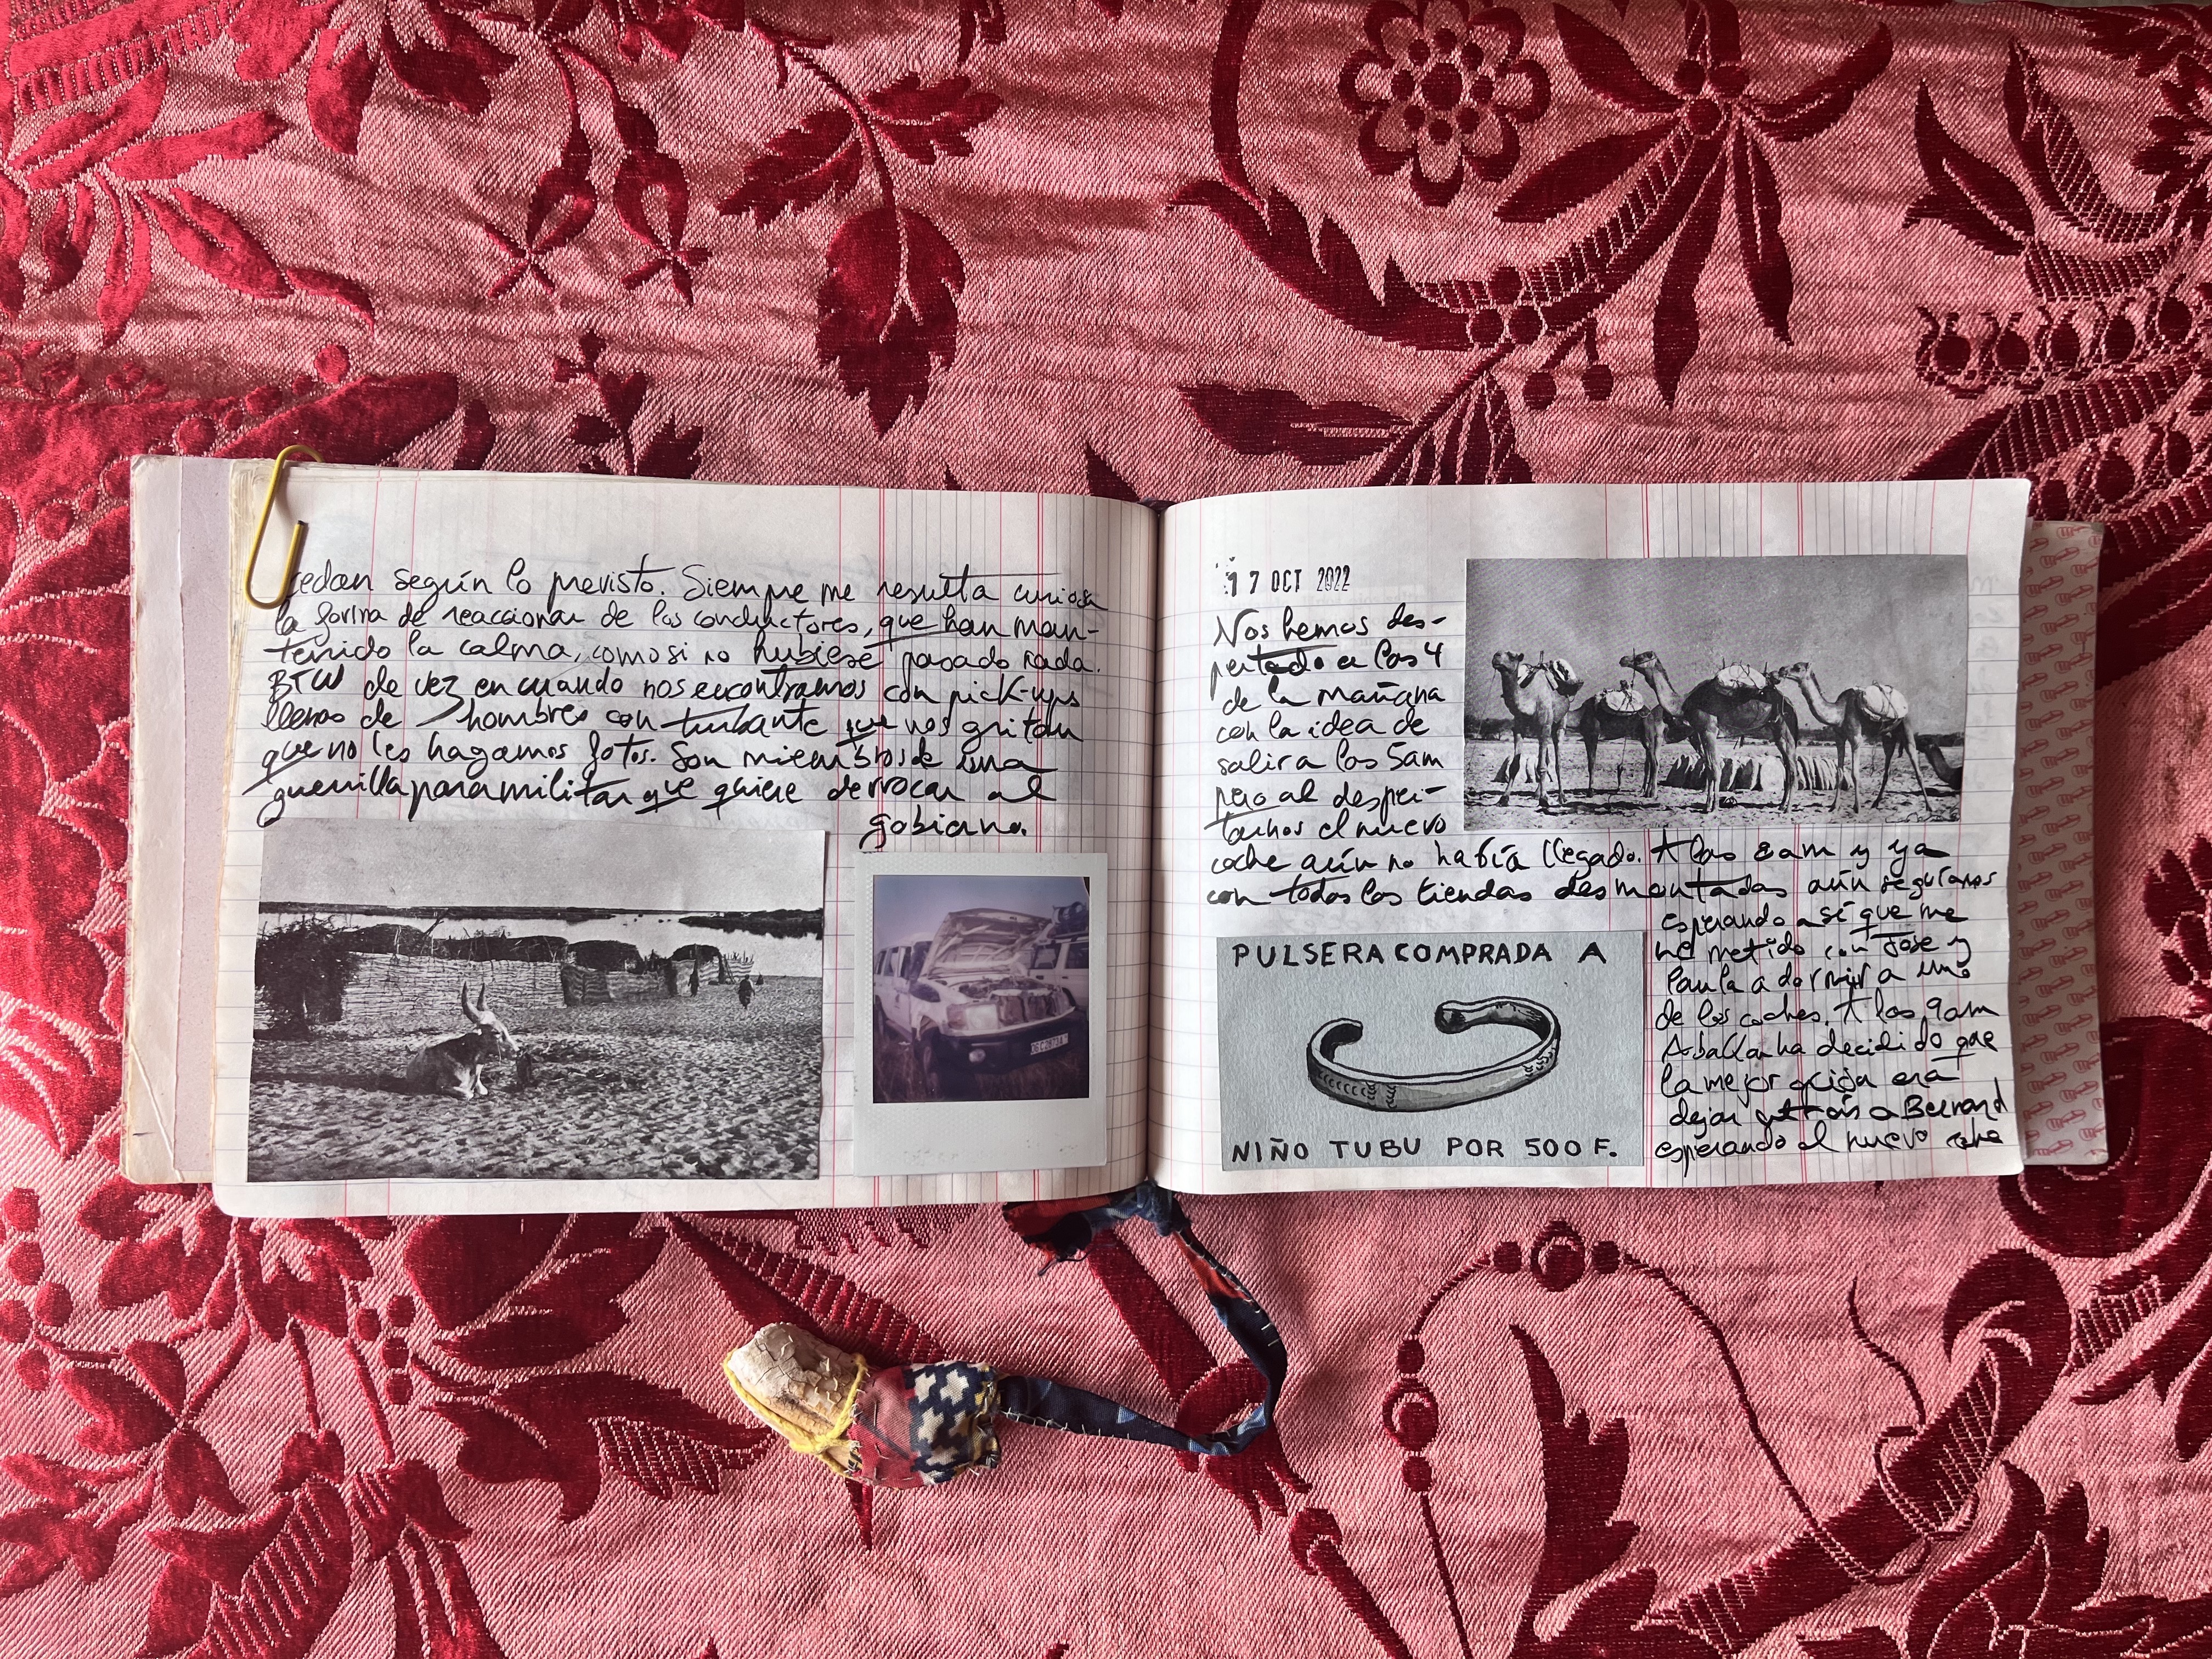 cedan según lo previsto. Siempre me resulta curiosa
la forma de reaccionar de los conductores, que han man-
tenido la calma, como si no hubiese pasado nada.
BTW de vez en cuando nos encontramos con pick-ups
llenos de hombres con turbante que nos gritan
que no les hagamos fotos. Son miembros de una
guerrilla paramilitar que quiere derrocar al
gobierno.
17 OCT 2022
Nos hemos des-
pertado a las 4
de la mañana
con la idea de
salir a las 5am
pero al desper-
tarnos el nuevo
coche aún no había llegado. A las 8am y ya
con todas las tiendas desmontadas aún seguíamos
esperando así que me
he metido con Jose y
Paula a dormir a uno
de los coches. A las 9am
ha decidido que
la mejor era
dejar atrás a Bernard
esperando el nuevo coche
PULSERA COMPRADA A
NIÑO TUBU POR 500 F.